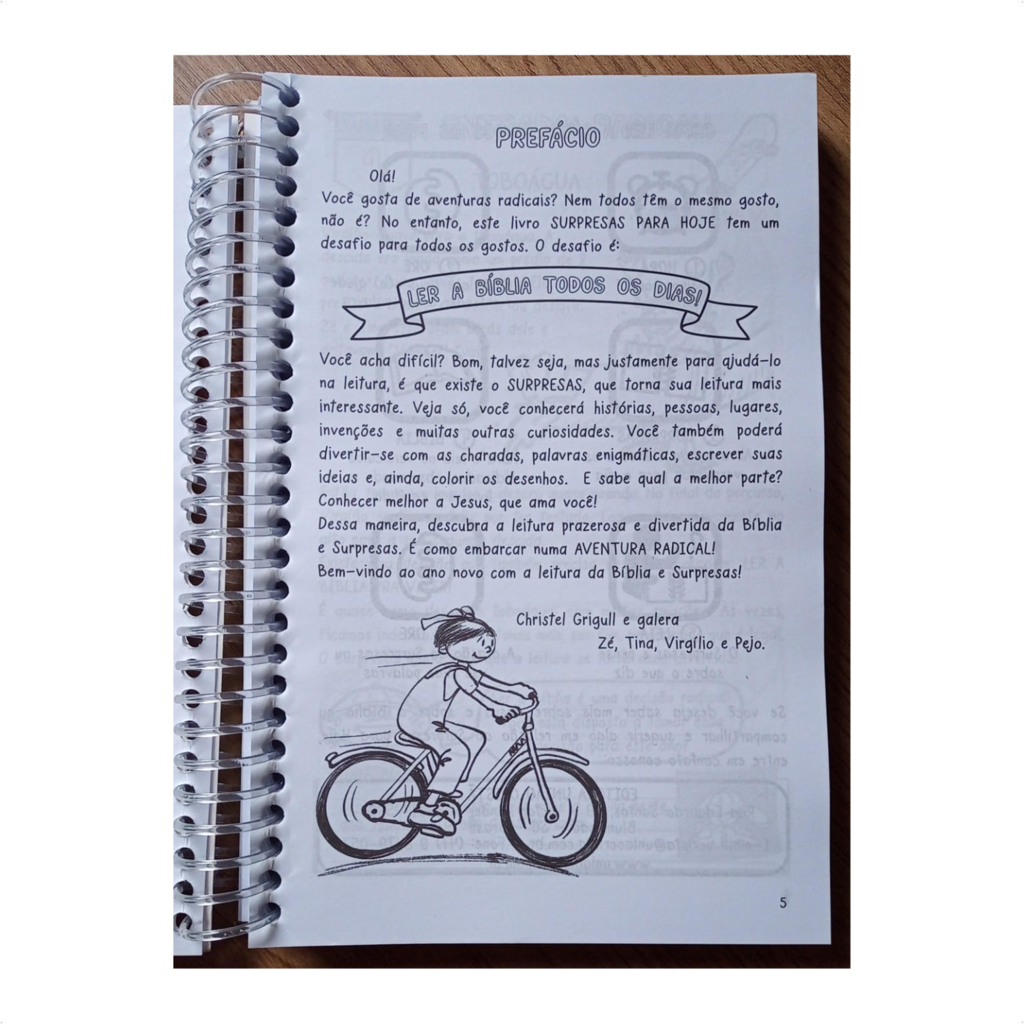 PREFÁCIO
Olá!
Você gosta de aventuras radicais? Nem todos têm o mesmo gosto,
não é? No entanto, este livro SURPRESAS PARA HOJE tem um
desafio para todos os gostos. O desafio é:
LER A BÍBLIA TODOS OS DIAS!
Você acha difícil? Bom, talvez seja, mas justamente para ajudá-lo
na leitura, é que existe o SURPRESAS, que torna sua leitura mais
interessante. Veja só, você conhecerá histórias, pessoas, lugares,
invenções e muitas outras curiosidades. Você também poderá
divertir-se com as charadas, palavras enigmáticas, escrever suas
ideias e, ainda, colorir os desenhos. E sabe qual a melhor parte?
Conhecer melhor a Jesus, que ama você!
Dessa maneira, descubra a leitura prazerosa e divertida da Bíblia
e Surpresas. É como embarcar numa AVENTURA RADICAL!
Bem-vindo ao ano novo com a leitura da Bíblia e Surpresas!
Christel Grigull e galera
Zé, Tina, Virgílio e Pejo.
5